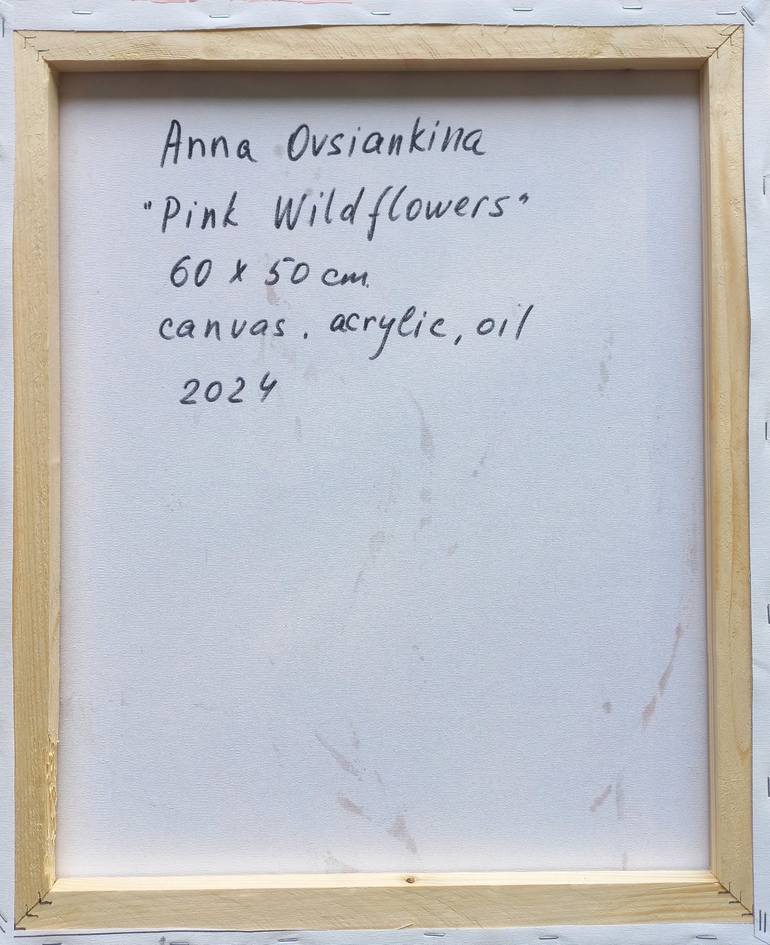 Anna Ovsiankina
"Pink Wildflowers"
60 x 50 cm.
canvas. acrylic, oil
2024